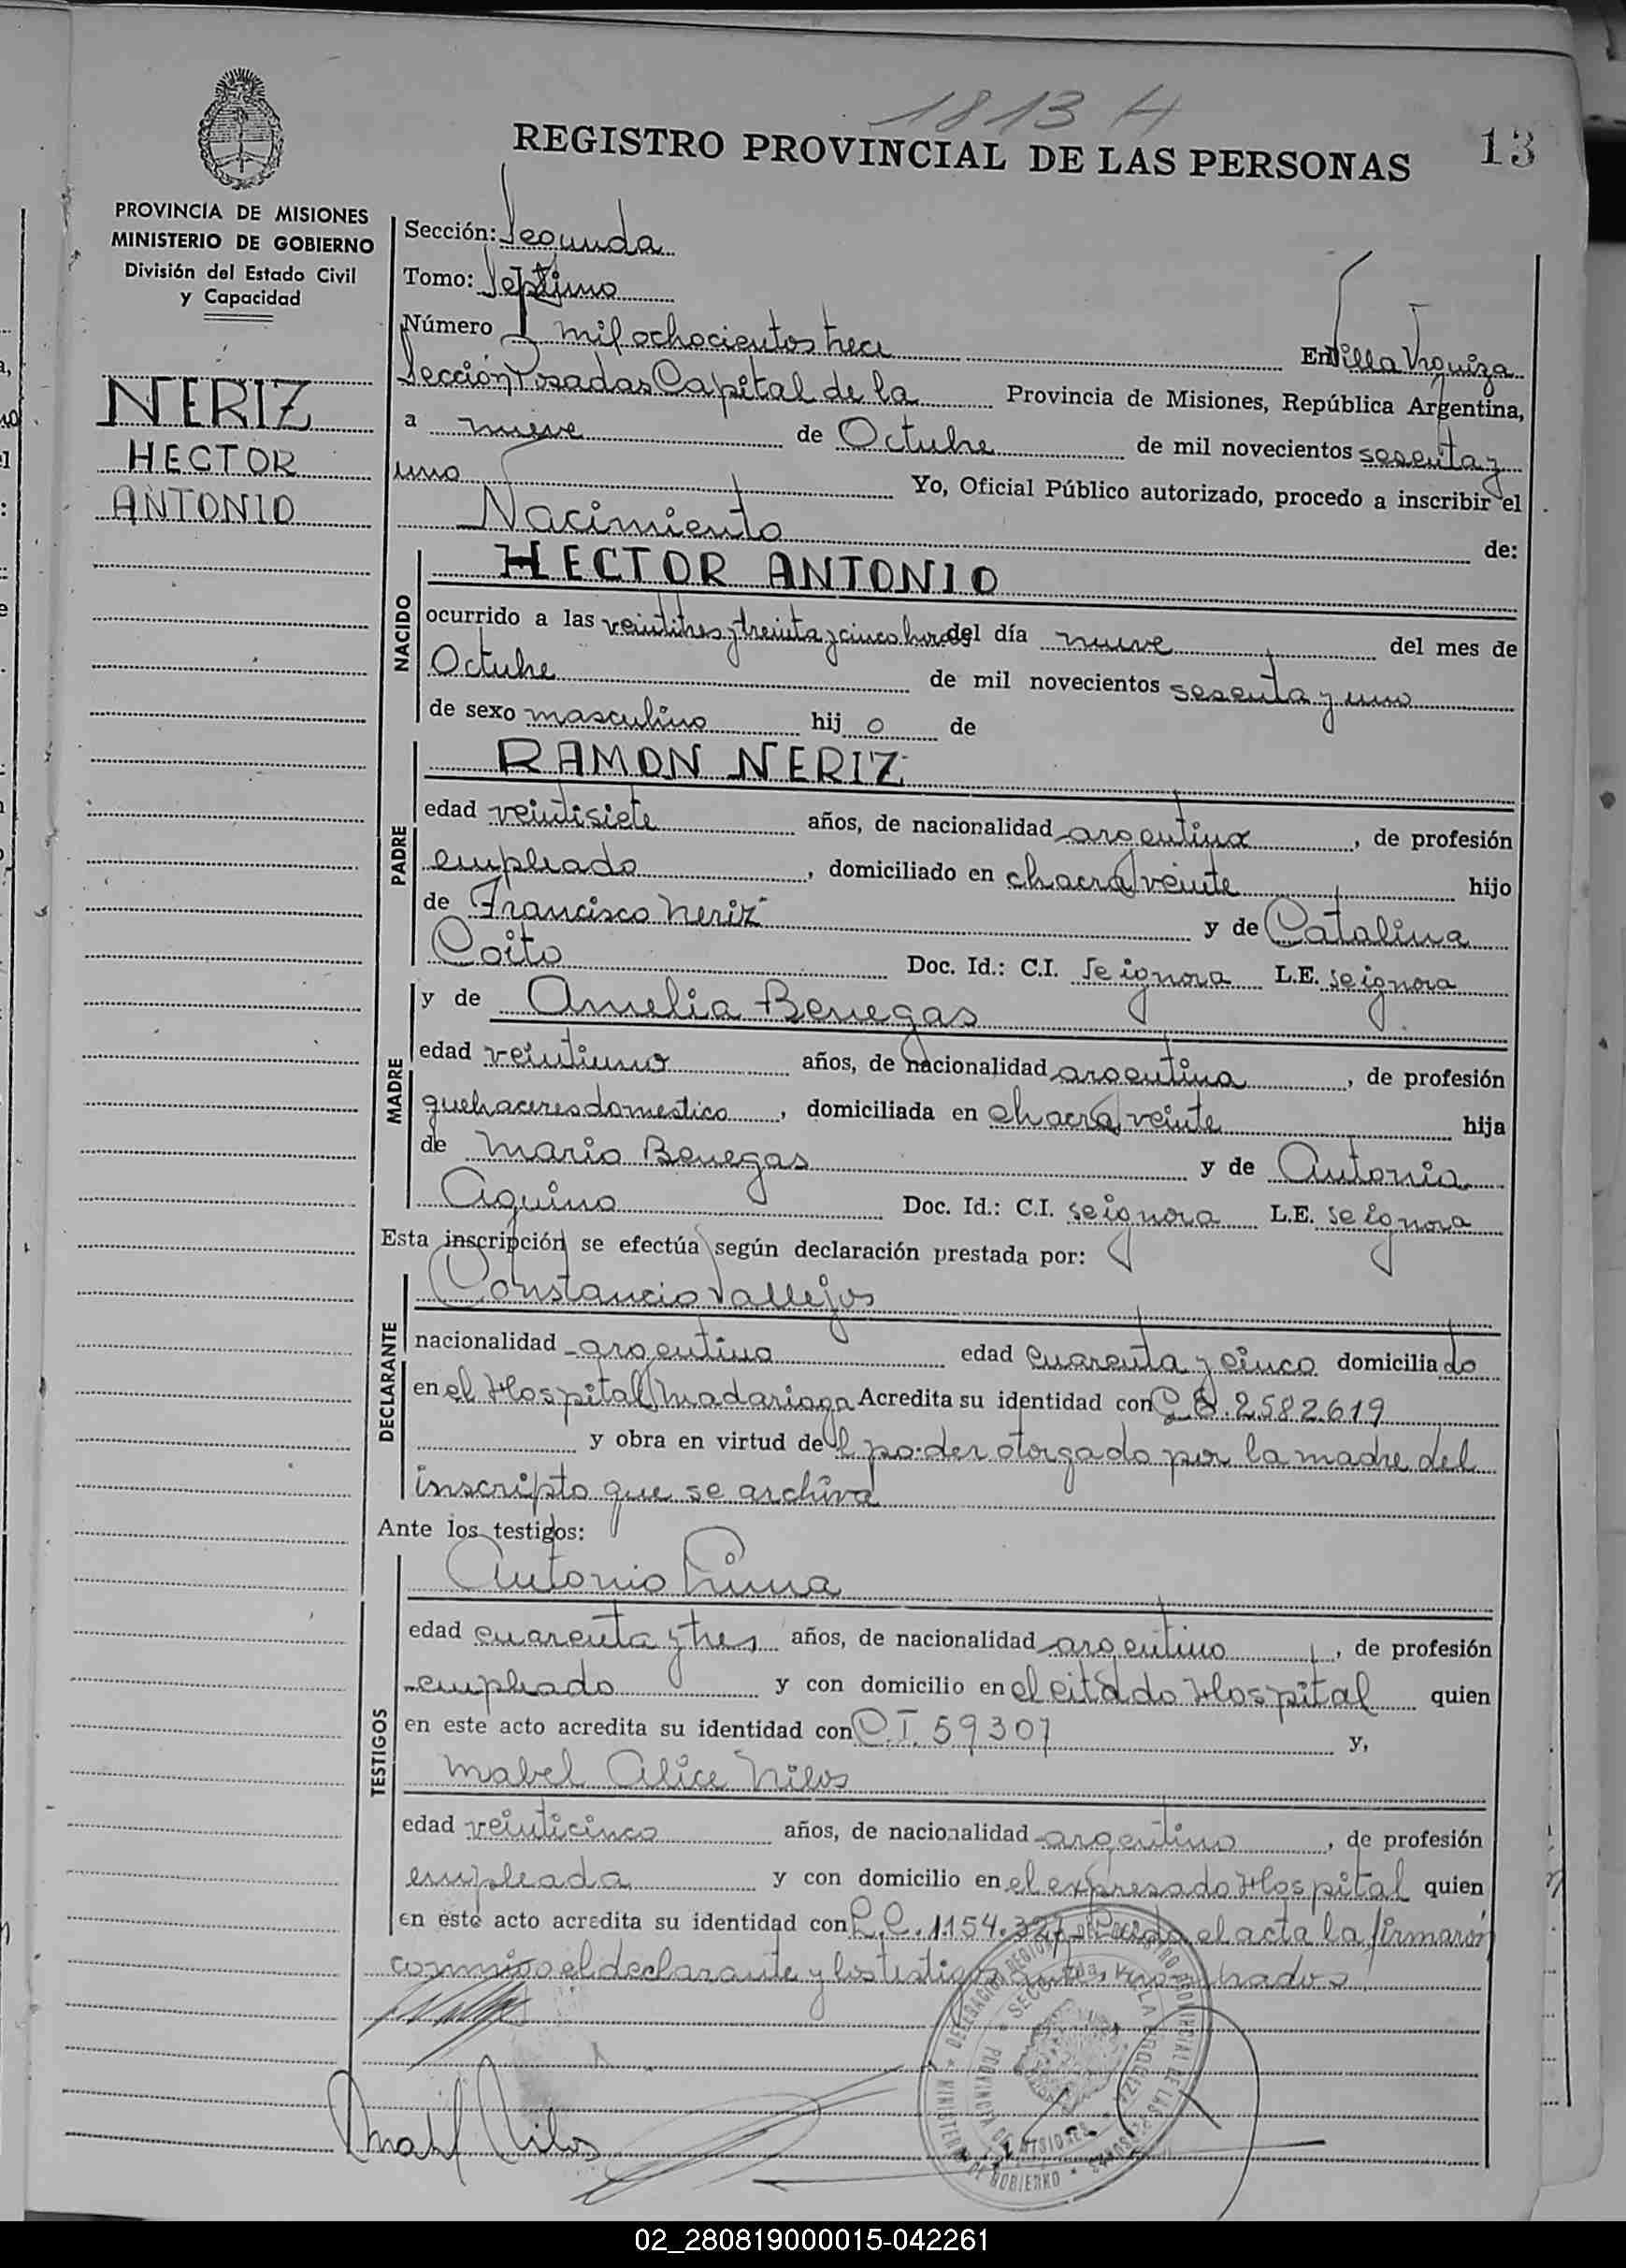 1813 H
REGISTRO PROVINCIAL DE LAS PERSONAS 13
PROVINCIA DE MISIONES
MINISTERIO DE GOBIERNO
División del Estado Civil
y Capacidad
NERIZ
HECTOR
ANTONIO
Sección: Segunda
Tomo: Septimo
Número mil ochocientos trece En Villa Urquiza
Sección Posadas Capital de la Provincia de Misiones, República Argentina,
a nueve de Octubre de mil novecientos sesenta y
uno Yo, Oficial Público autorizado, procedo a inscribir el
Nacimiento de:
NACIDO
HECTOR ANTONIO
ocurrido a las veintitres y treinta y cinco horas del día nueve del mes de
Octubre de mil novecientos sesenta y uno
de sexo masculino hij o de
PADRE
RAMON NERIZ
edad veintisiete años, de nacionalidad argentina, de profesión
empleado, domiciliado en chacra veinte hijo
de Francisco Neriz y de Catalina
Coito Doc. Id.: C.I. se ignora L.E. se ignora
MADRE
y de Amelia Benegas
edad veintiuno años, de nacionalidad argentina, de profesión
quehaceres domestico, domiciliada en chacra veinte hija
de Mario Benegas y de Antonia
Aquino Doc. Id.: C.I. se ignora L.E. se ignora
Esta inscripción se efectúa según declaración prestada por:
DECLARANTE
Constancio Vallejos
nacionalidad argentino edad cuarenta y cinco domiciliado
en el Hospital Madariaga Acredita su identidad con 2582619
y obra en virtud del poder otorgado por la madre del
inscripto que se archiva
Ante los testigos:
TESTIGOS
Antonio Lima
edad cuarenta y tres años, de nacionalidad argentino, de profesión
empleado y con domicilio en el citado Hospital quien
en este acto acredita su identidad con C.I. 59307 y,
Mabel Alice Nilos
edad veinticinco años, de nacionalidad argentino, de profesión
empleada y con domicilio en el expresado Hospital quien
en este acto acredita su identidad con L.C. 1154. Leida el acta la firmaron
conmigo el declarante y los testigos
Mabel Nilos
02_280819000015-042261